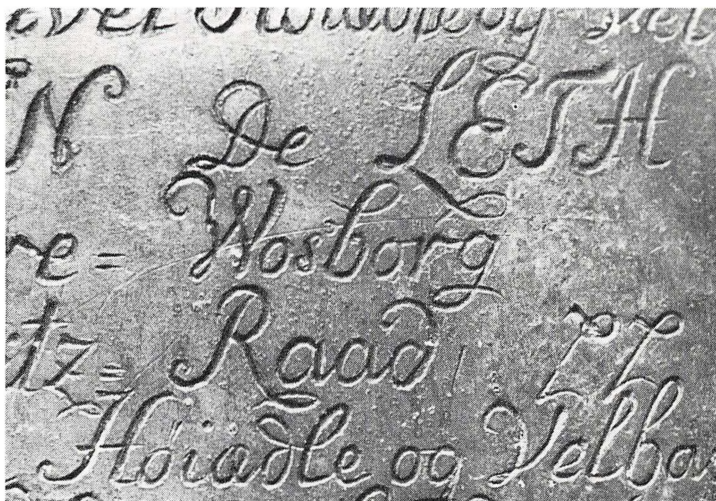 N De LETH
re= Wosborg
tz= Raad,
Høiadle og Velba